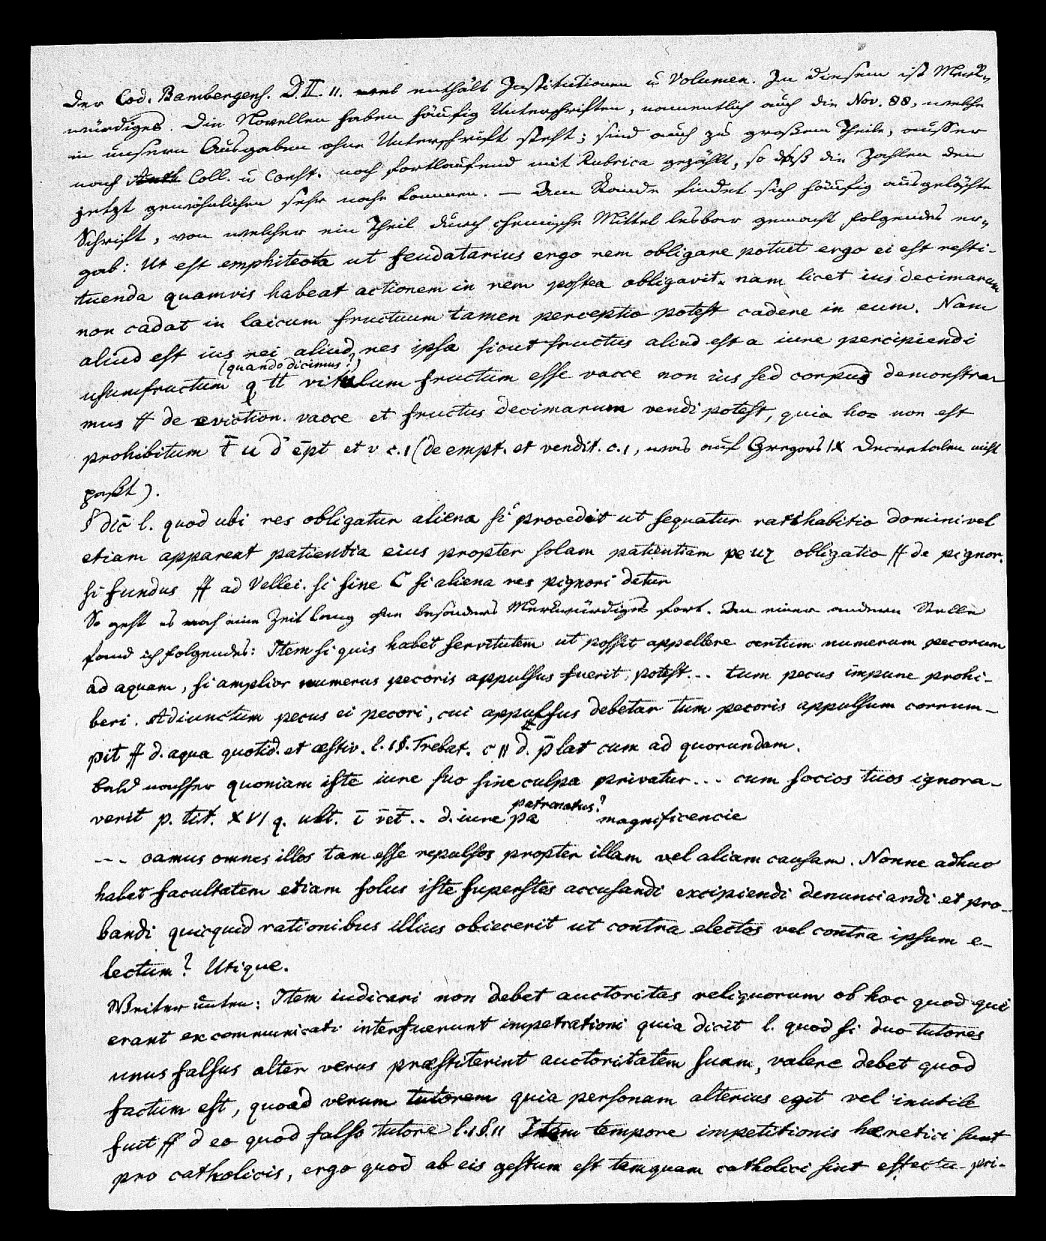 Der Cod. Bambergens. D. II. 11. enthält Institutionen u Volumen. In diesem ist Merk-
würdiges. Die Novellen haben häufig Unterschriften, namentlich auch die Nov. 88, welche
in unsern Ausgaben ohne Unterschrift steht; sind auch zu großem Theile, ausser
nach Coll. u Const. noch fortlaufend mit Rubrica gezählt, so daß die Zahlen den
jetzt gewöhnlichen sehr nahe kommen. — Am Rande findet sich häufig ausgelöschte
Schrift, von welcher ein Theil durch chemische Mittel lesbar gemacht folgendes er-
gab: Ut est emphiteota ut feudatarius ergo rem obligare potuit ergo ei est resti-
tuenda quamvis habeat actionem in rem postea obligavit. nam licet ius decimarum
non cadat in laicum fructuum tamen perceptio potest cadere in eum. Nam
aliud est ius rei aliud res ipsa sicut fructus aliud est a iure percipiendi
(quando dicimus?)
usumfructum q tt vitulum fructum esse vacce non ius sed corpus demonstra-
mus ff de eviction. vacce et fructus decimarum vendi potest, quia hoc non est
prohibitum t̄ u d' ēpt et v c. 1 (de empt. et vendit. c. 1, was auf Gregors IX Decretalen nicht
paßt).
§ dic̄ l. quod ubi res obligatur aliena si procedit ut sequatur ratihabitio domini vel
etiam appareat patientia eius propter solam patientiam obligatio ff de pignor.
si fundus ff ad Vellei. si sine C si aliena res pignori detur
So geht es noch eine Zeit lang ohne besonders Merkwürdiges fort. An einer anderen Stelle
fand ich folgendes: Item si quis habet servitutem ut possit appellere centum numerum pecorum
ad aquam, si amplior numerus pecoris appulsus fuerit, potest... tum pecus impune prohi-
beri. Adiunctum pecus ei pecori, cui appulsus debetur tum pecoris appulsum corrum-
pit ff d. aqua quotid. et æstiv. l. 1 §. Trebat. c 11 d. p̄lat cum ad quorundam.
Bald nachher quoniam iste iure suo sine culpa privatur... cum socios tuos ignora-
verit p. tit. XVI q. ult. ī vēt.. d. iure pæ magnificencie
patronatus?
--- oamus omnes illos tam esse repulsos propter illam vel aliam causam. Nonne adhuc
habet facultatem etiam solus iste superstes accusandi excipiendi denunciandi et pro-
bandi quicquid rationibus illius obiecerit ut contra electos vel contra ipsum e-
lectum? Utique.
Weiter unten: Item iudicari non debet auctoritas reliquorum ob hoc quod qui
erant excommunicati interfuerunt impetrationi quia dicit l. quod si duo tutores
unus falsus alter verus præstiterint auctoritatem suam, valere debet quod
factum est, quoad verum tutorem quia personam alterius egit vel inutile
fuit ff d eo quod falso tutore l. 1 §. 11 Item tempore impetitionis hæretici sunt
pro catholicis, ergo quod ab eis gestum est tamquam catholici sint effectu pri-